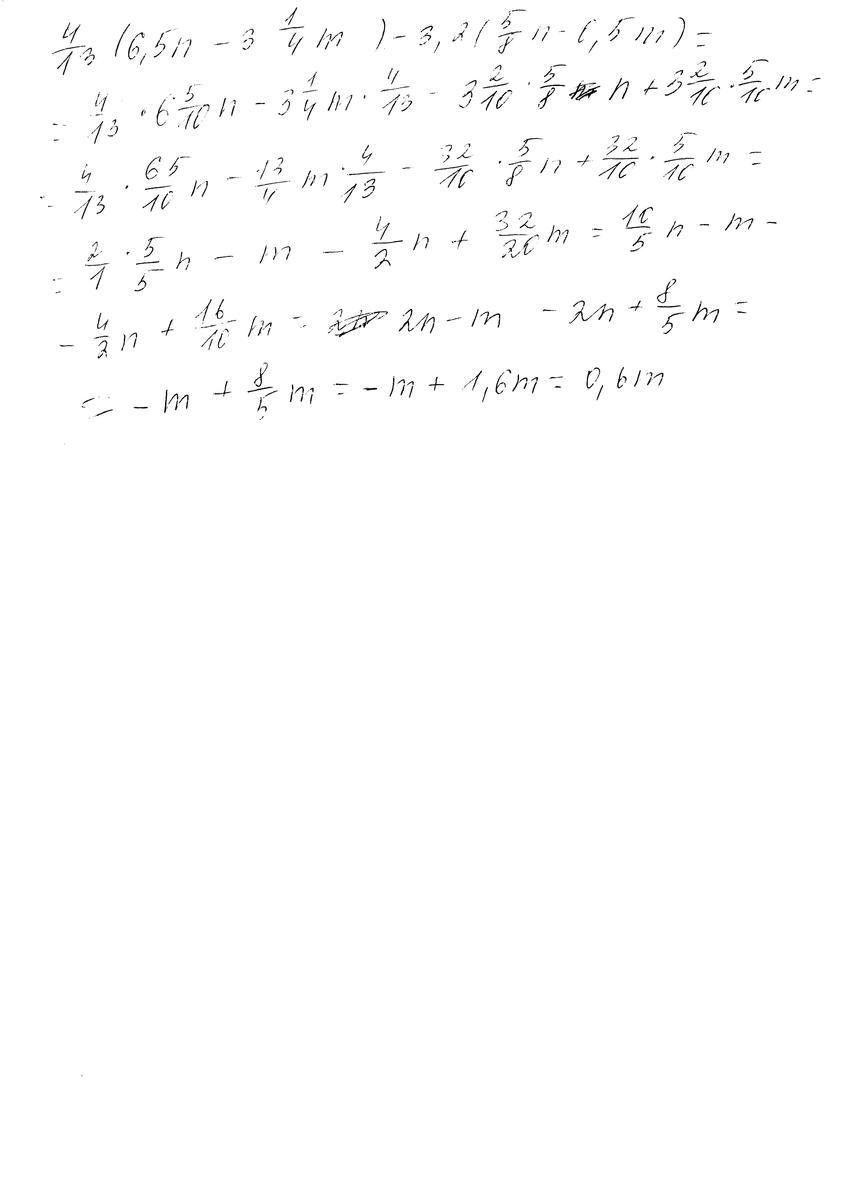 4/13 (6,5n - 3 1/4 m ) - 3,2 ( 5/8 n - 0,5m) =
= 4/13 · 6 5/10 n - 3 1/4 m · 4/13 - 3 2/10 · 5/8 n + 3 2/10 · 5/10 m =
= 4/13 · 65/10 n - 13/4 m · 4/13 - 32/10 · 5/8 n + 32/10 · 5/10 m =
= 2/1 · 5/5 n - m - 4/2 n + 32/20 m = 10/5 n - m -
- 4/2 n + 16/10 m = 2n - m - 2n + 8/5 m =
= - m + 8/5 m = - m + 1,6m = 0,6m